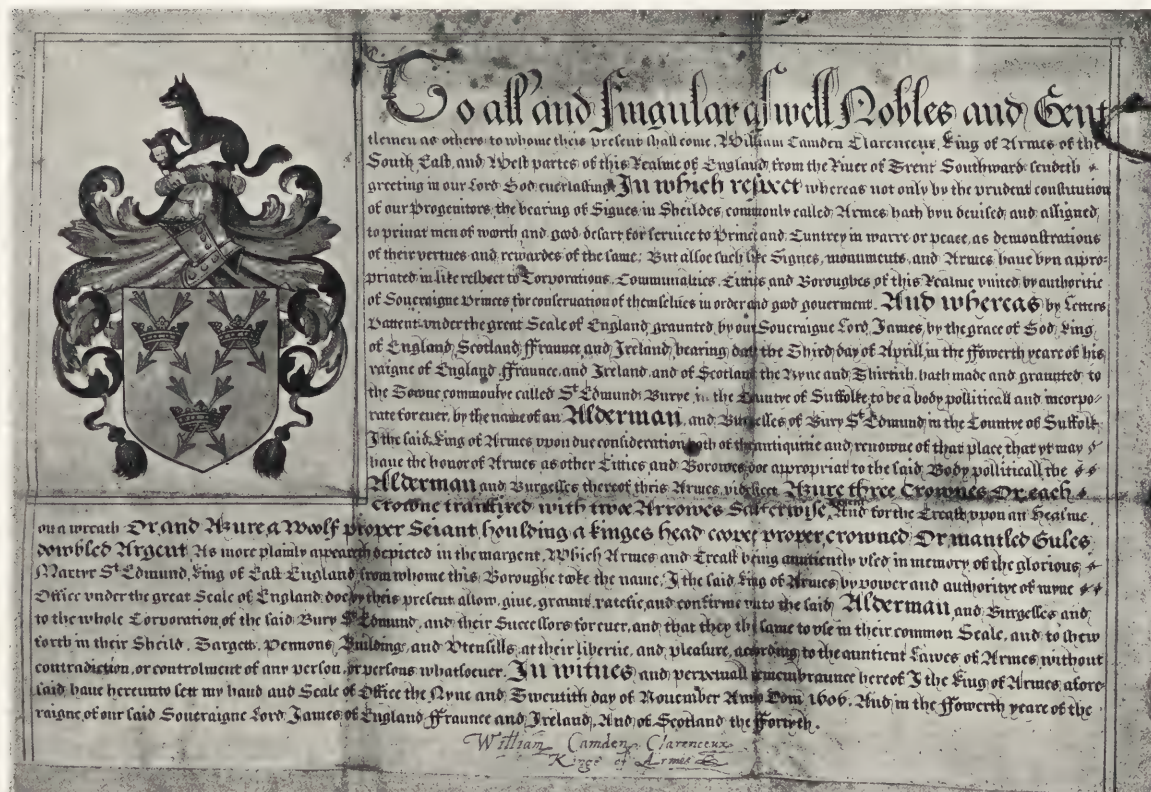 To all and singular aswell Nobles and Gent
tlemen as others to whome theis present shall come, William Camden Clarenceux, King of Armes of the
South East, and West partes of this Realme of England from the River of Trent Southward sendeth
greeting in our Lord God everlasting. In which respect whereas not only by the prudent constitution
of our Progenitors, the bearing of Signes in Sheildes, commonly called Armes hath byn devised, and assigned
to privat men of worth and good desart for service to Prince and Cuntrey in warre or peace, as demonstrations
of their vertues and rewardes of the same; But allsoe such like Signes, monuments, and Armes have byn appro-
priated in like respect to Corporations, Communalties, Citties and Boroughes of this Realme united by authoritie
of Soveraigne Princes for conservation of themselves in order and good goverment. And whereas by Letters
Pattent under the great Seale of England, graunted, by our Soveraigne Lord, James, by the grace of God, King
of England, Scotland, ffraunce, and Ireland, bearing date the Third day of Aprill, in the ffowerth yeare of his
raigne of England, ffraunce, and Ireland and of Scotland the Nyne and Thirtith, hath made and graunted to
the Towne commonlye called St Edmunds Burye in the Countye of Suffolke to be a body politicall and incorpo-
rate for ever, by the name of an Alderman, and Burgesses of Bury St Edmund, in the Countye of Suffolk
I the said, King of Armes upon due consideration both of the antiquitie and renowne of that place, that yt may
have the honor of Armes as other Citties and Borowes doe appropriat to the said Body politicall the
Alderman and Burgesses thereof theis Armes, Azure three Crownes Or, each
Crowne transfixed with twoe Arrowes Salterwise, And for the Creast upon an Healme
on a wreath Or and Azure a Woolf proper Seiant houlding a kinges head proper, crowned Or, mantled Gules
dowbled Argent. As more plainly appeareth depicted in the margent. Which Armes and Creast being aunciently used in memory of the glorious
Martyr St Edmund, King of East England from whome this Boroughe tooke the name, I the said King of Armes by power and authoritye of myne
Office under the great Seale of England doe by theis present allow, give, graunt, ratefie, and confirme unto the said, Alderman and Burgesses and
to the whole Corporation of the said Bury St Edmund, and their Successors for ever, and that they the same to use in their common Seale, and to shew
forth in their Sheild, Targett, Pennons, Buildings, and Utensills at their libertie, and pleasure, according to the auntient Lawes of Armes without
contradiction, or controlment of any person, or persons whatsoever. In witnes and perpetuall remembraunce hereof I the King of Armes afore
said have hereunto sett my hand and Seale of Office the Nyne and Twentith day of November Anno Dom 1606. And in the ffowerth yeare of the
raigne of our said Soveraigne Lord James of England ffraunce and Ireland, And of Scotland the ffortyth.
William Camden Clarenceux
Kinge of Armes